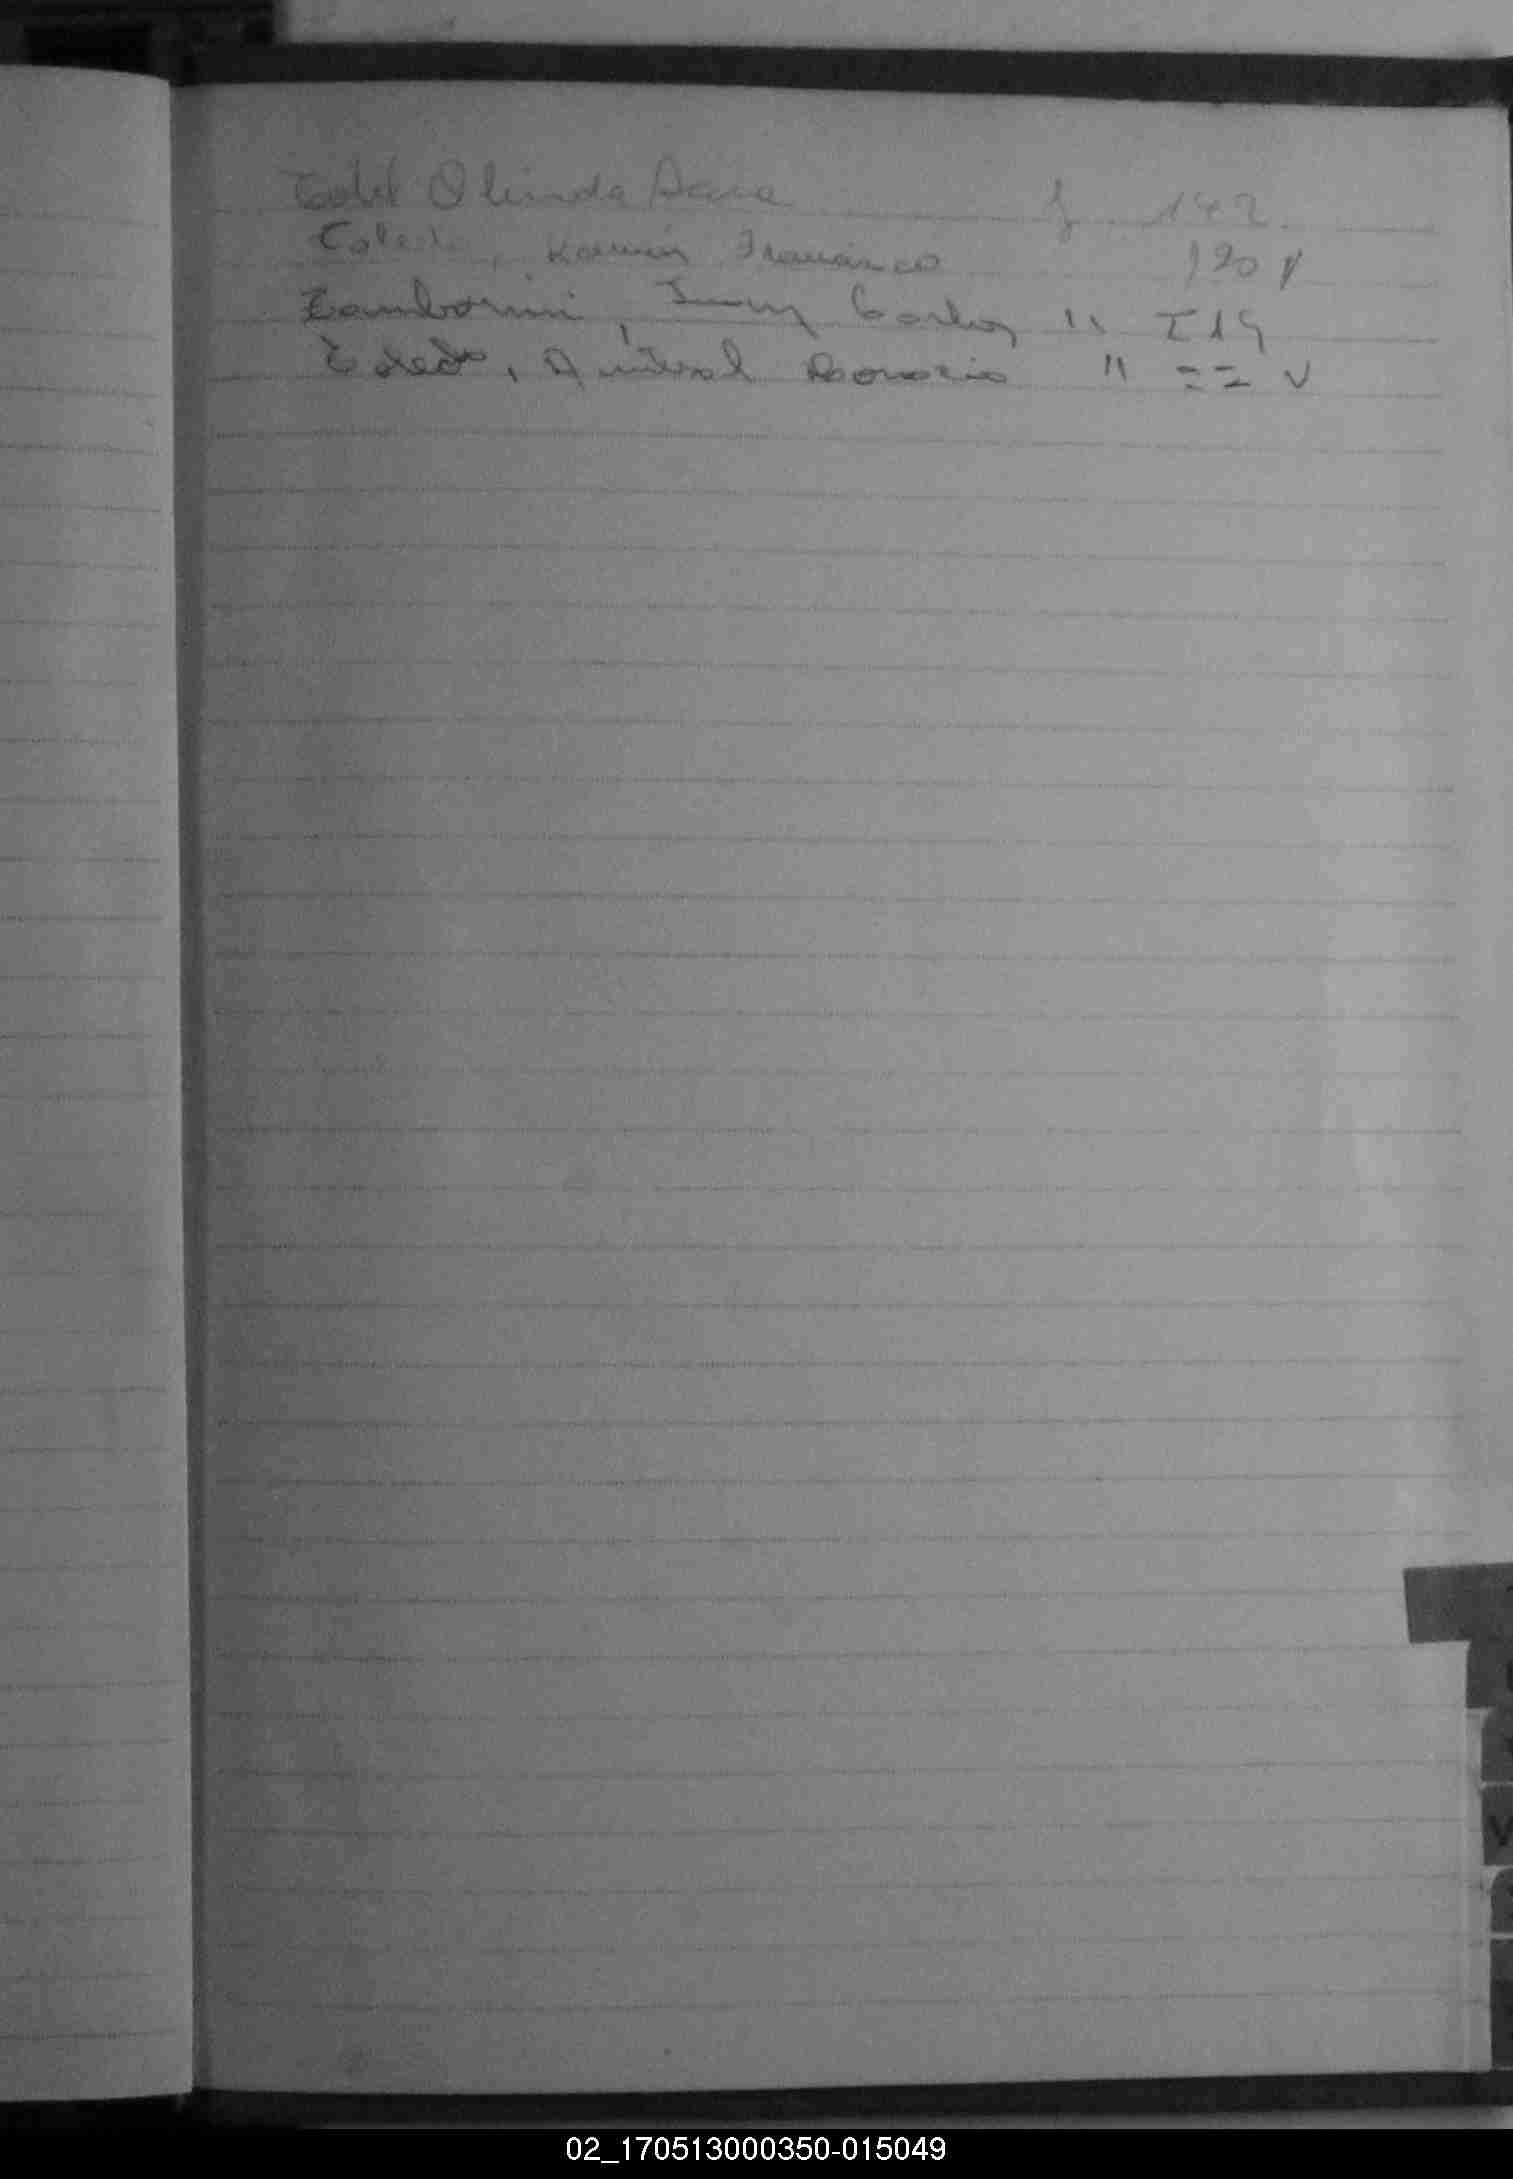 Olinda Sara f 142
Toledo, Ramón Francisco 120 V
Tamborini, Juan Carlos " 219
Toledo, Anibal Horacio " 22 V
V
02_170513000350-015049